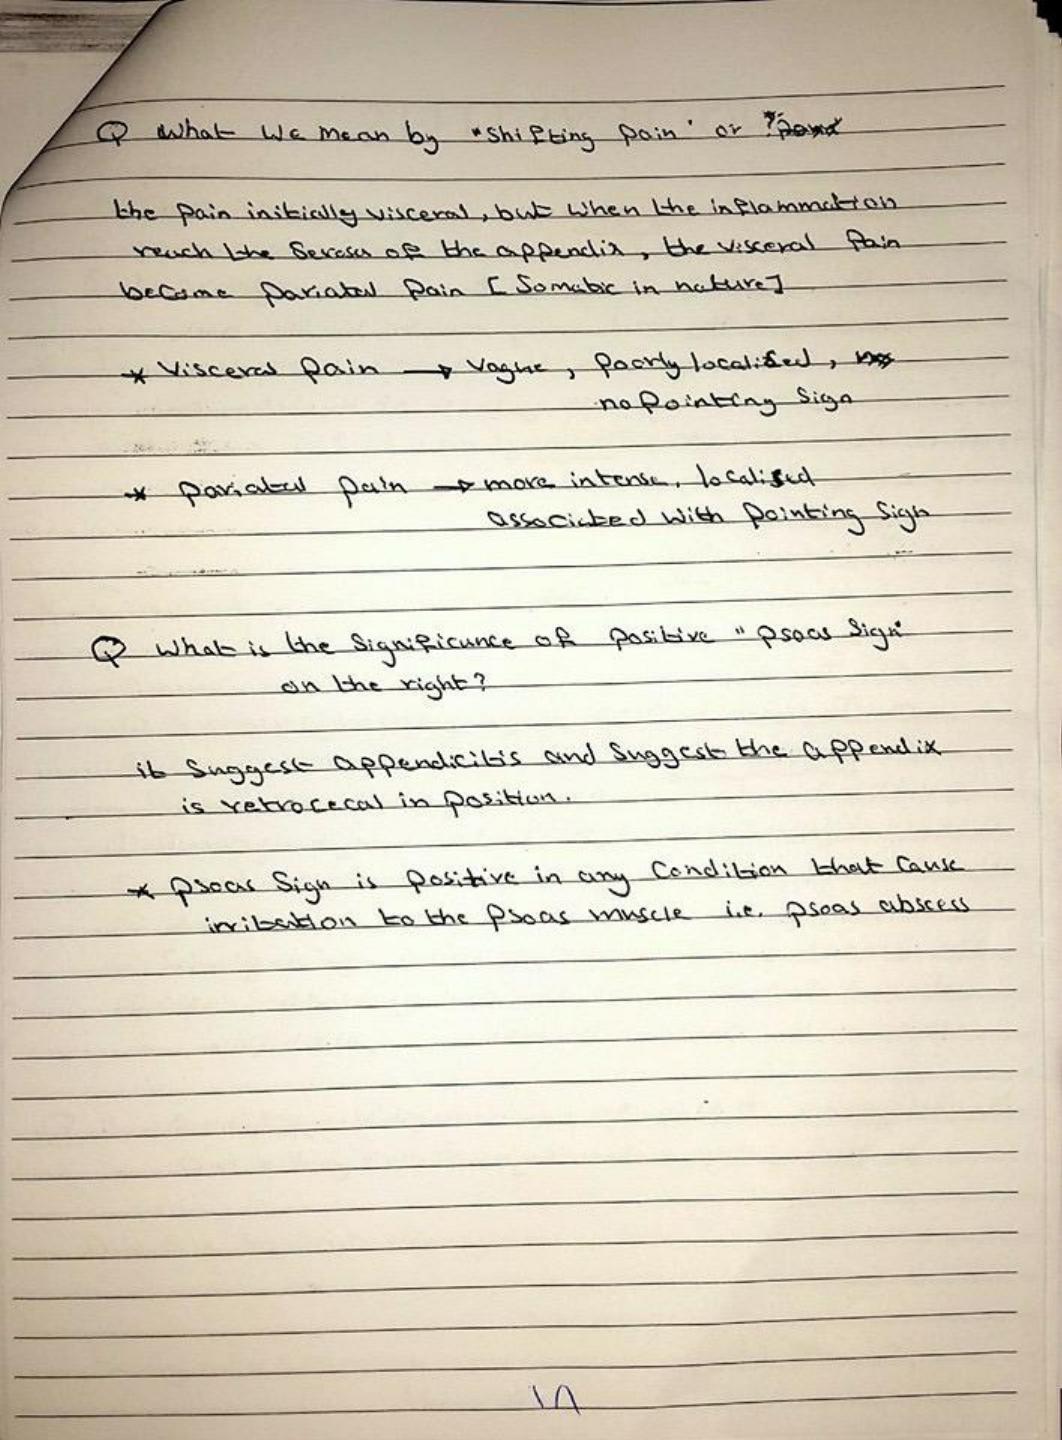 Q What we mean by "Shifting pain" or ?
the pain initially visceral, but when the inflammation
reach the Serosa of the appendix, the visceral Pain
become pariatal pain [Somatic in nature]
* Visceral pain → Vague, Poorly localised,
no Pointing Sign
* pariatal pain → more intense, localised
associated with pointing Sign
Q What is the Significance of positive "psoas Sign"
on the right?
it Suggest appendicitis and Suggest the appendix
is retrocecal in position.
* psoas Sign is positive in any Condition that Cause
irritation to the Psoas muscle i.e. psoas abscess